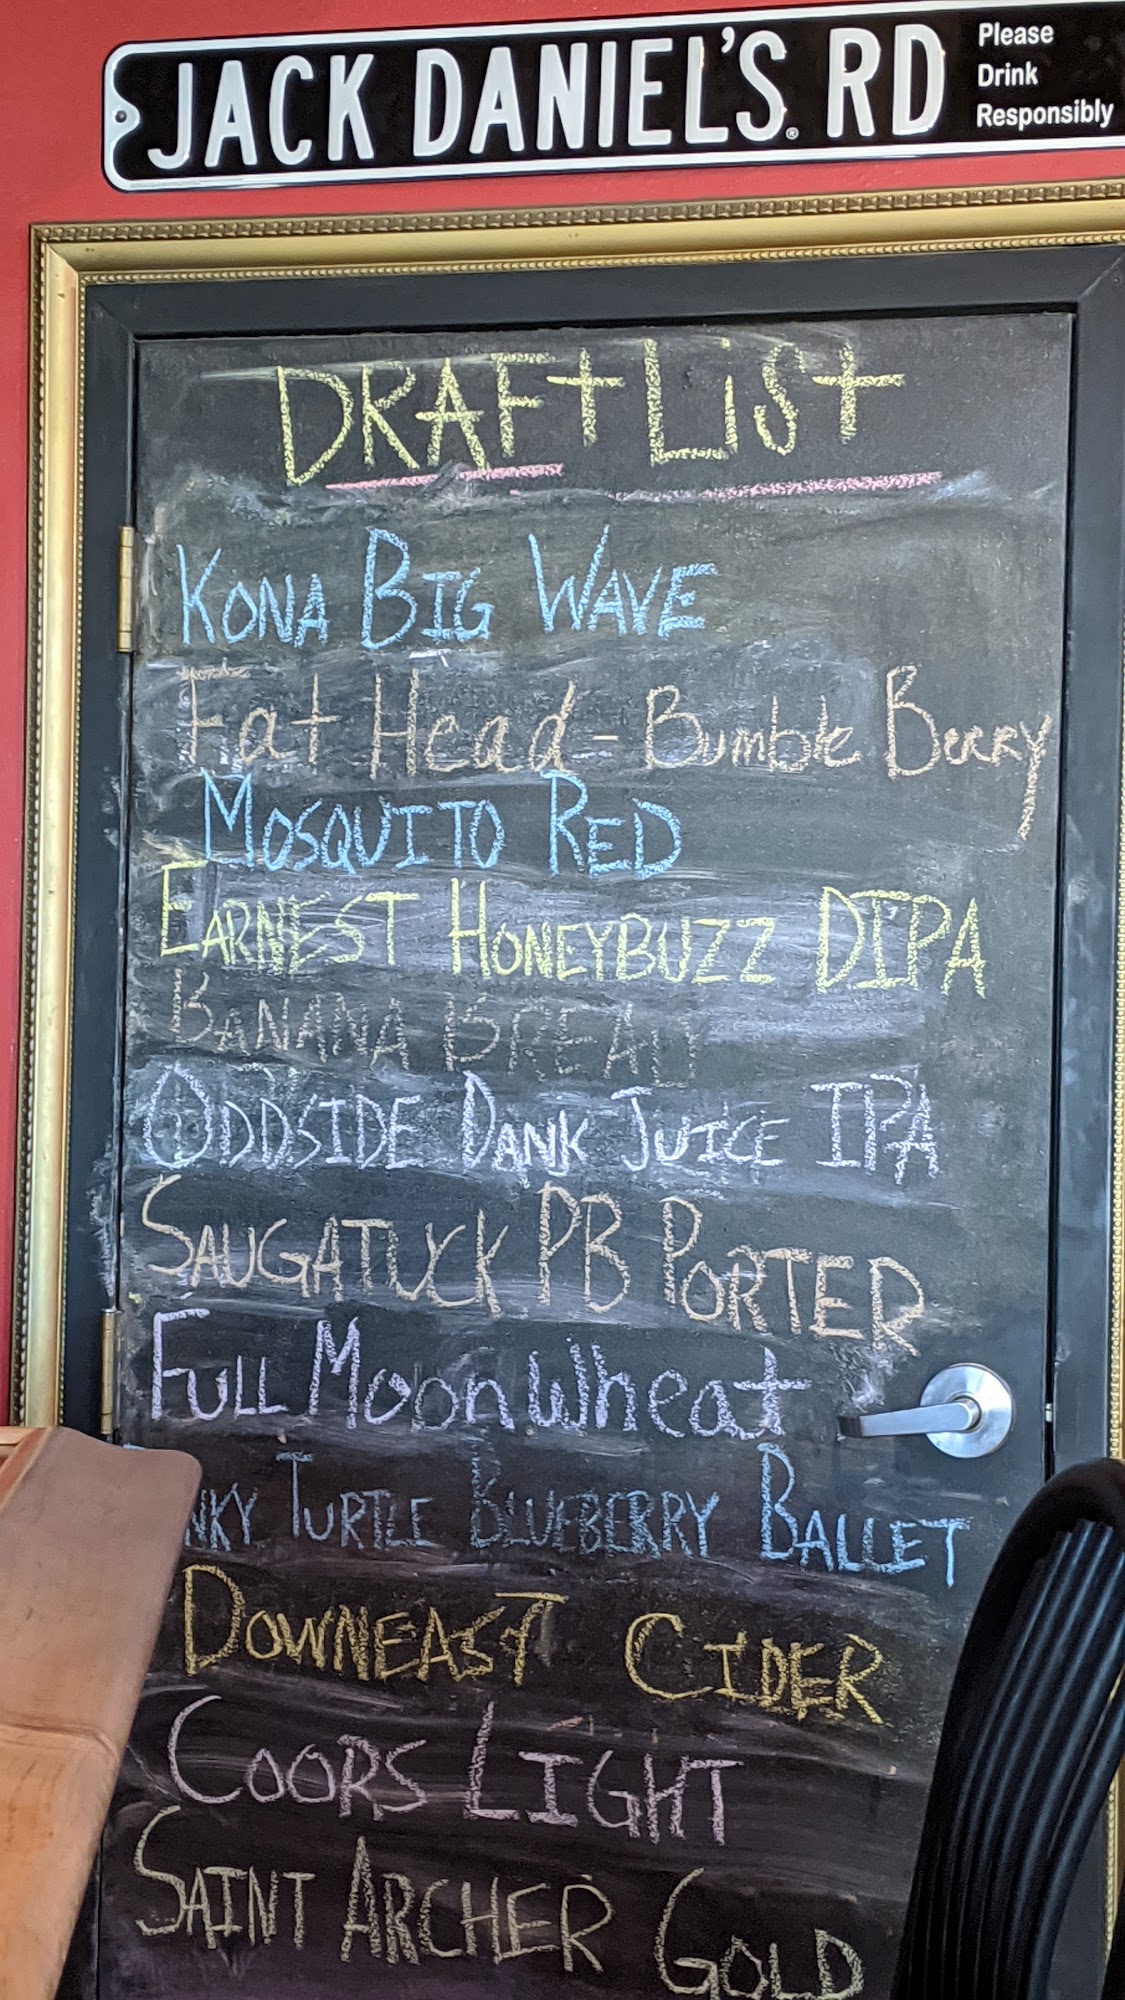 JACK DANIEL'S® RD
Please
Drink
Responsibly
DRAFt LiSt
KONA BIG WAVE
Fat Head - Bumble Berry
MOSQUITO RED
EARNEST HONEYBUZZ DIPA
BANANA
ODDSIDE DANK JUICE IPA
SAUGATUCK PB PORTER
FULL Moon Wheat
NKY TURTLE BLUEBERRY BALLET
DOWNEAST CIDER
COORS LIGHT
SAINT ARCHER GOLD